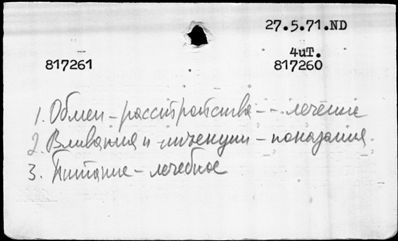 27.5.71.ND
4иТ.
817261 817260
1. Обмен - расстройства -- лечение
2. Вливания и инъекции - показания.
3. Питание - лечебное